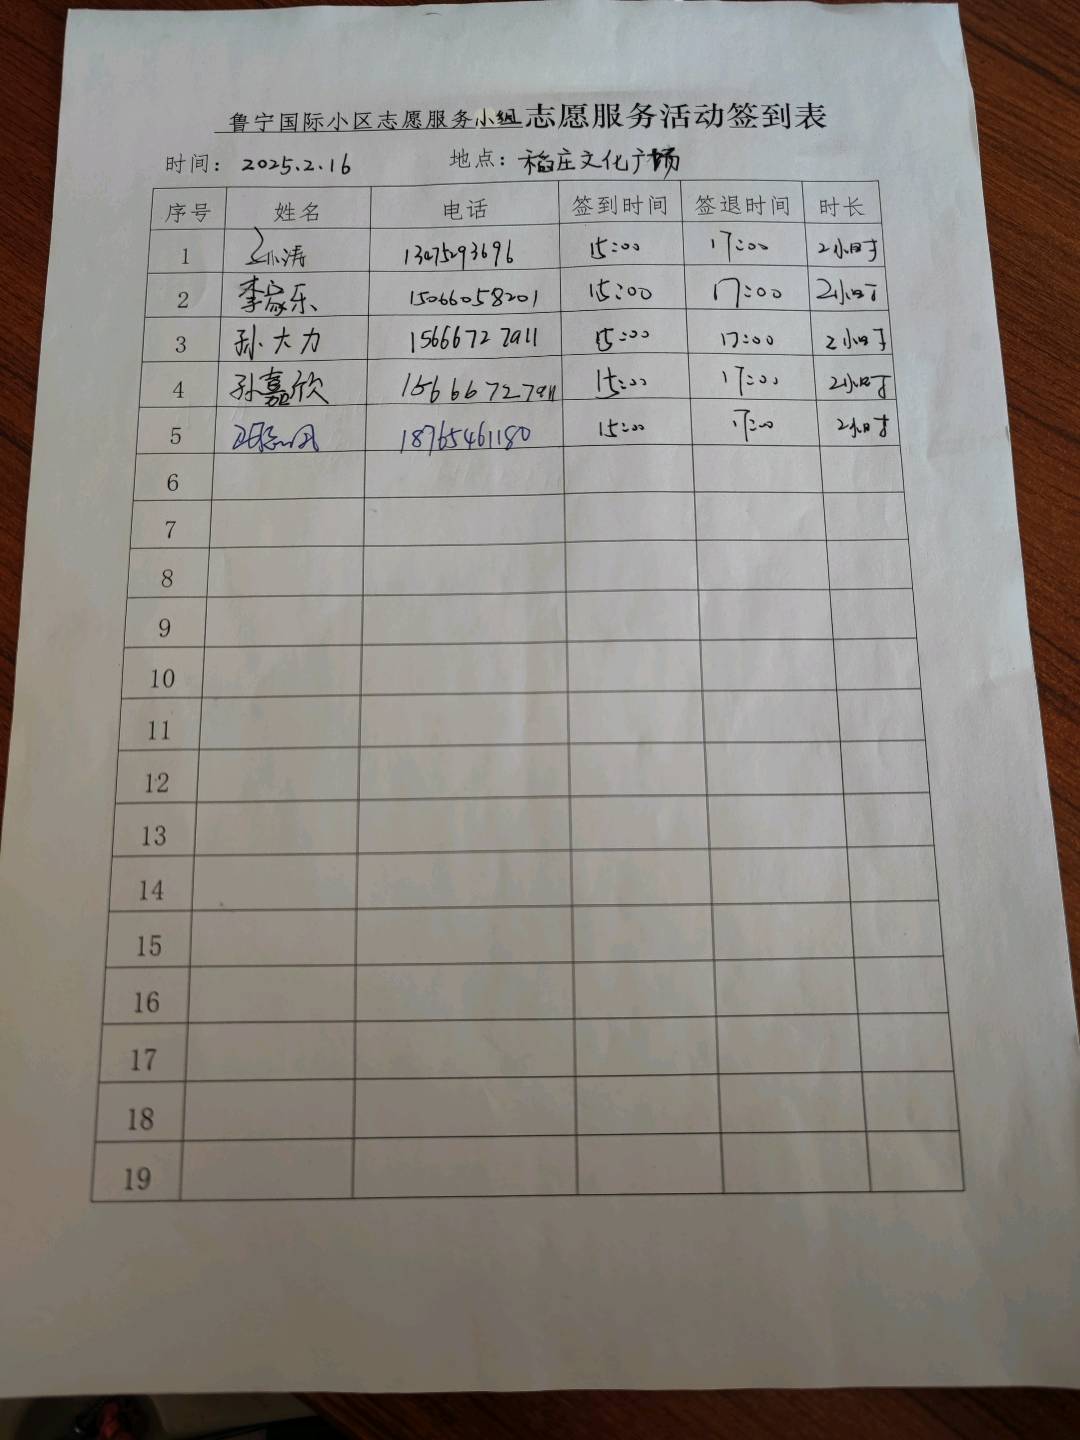 鲁宁国际小区志愿服务小组志愿服务活动签到表
时间: 2025.2.16 地点: 稻庄文化广场
序号 姓名 电话 签到时间 签退时间 时长
1 涛 13475293696 15:00 17:00 2小时
2 李家乐 15066058201 15:00 17:00 2小时
3 孙大力 15666727911 15:00 17:00 2小时
4 孙嘉欣 15666727911 15:00 17:00 2小时
5 18765461180 15:00 17:00 2小时
6
7
8
9
10
11
12
13
14
15
16
17
18
19